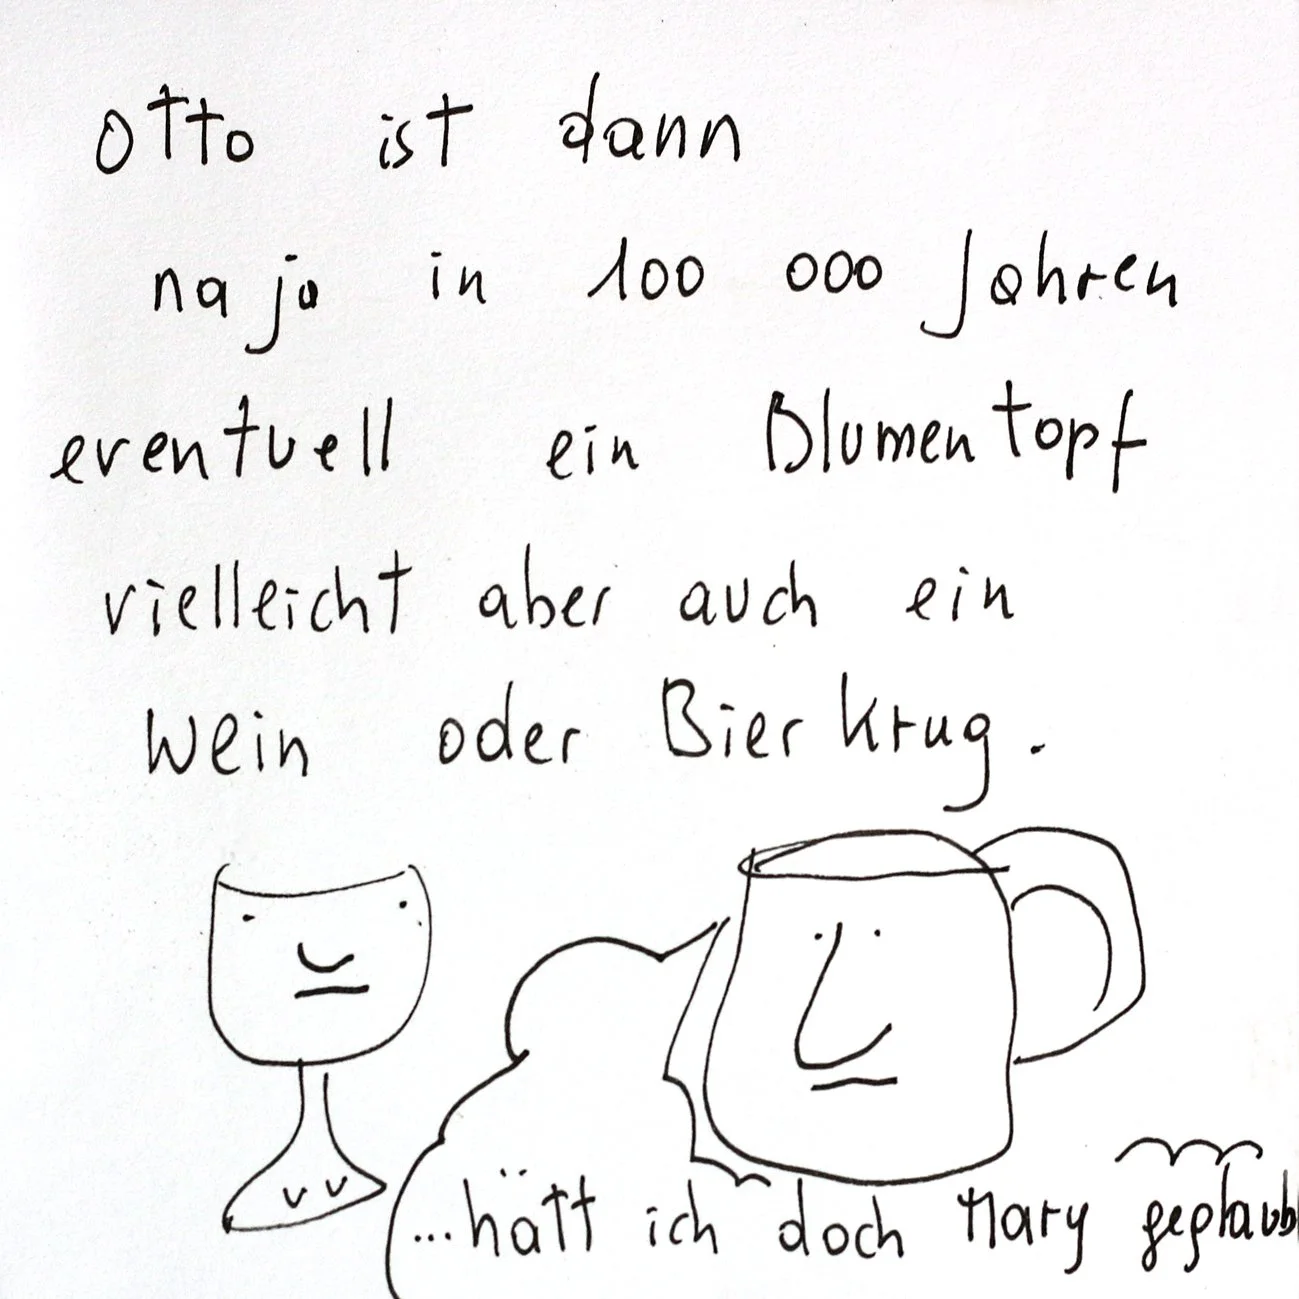 Otto ist dann
na ja in 100 000 Jahren
eventuell ein Blumentopf
vielleicht aber auch ein
Wein oder Bierkrug.
...hätt ich doch Mary